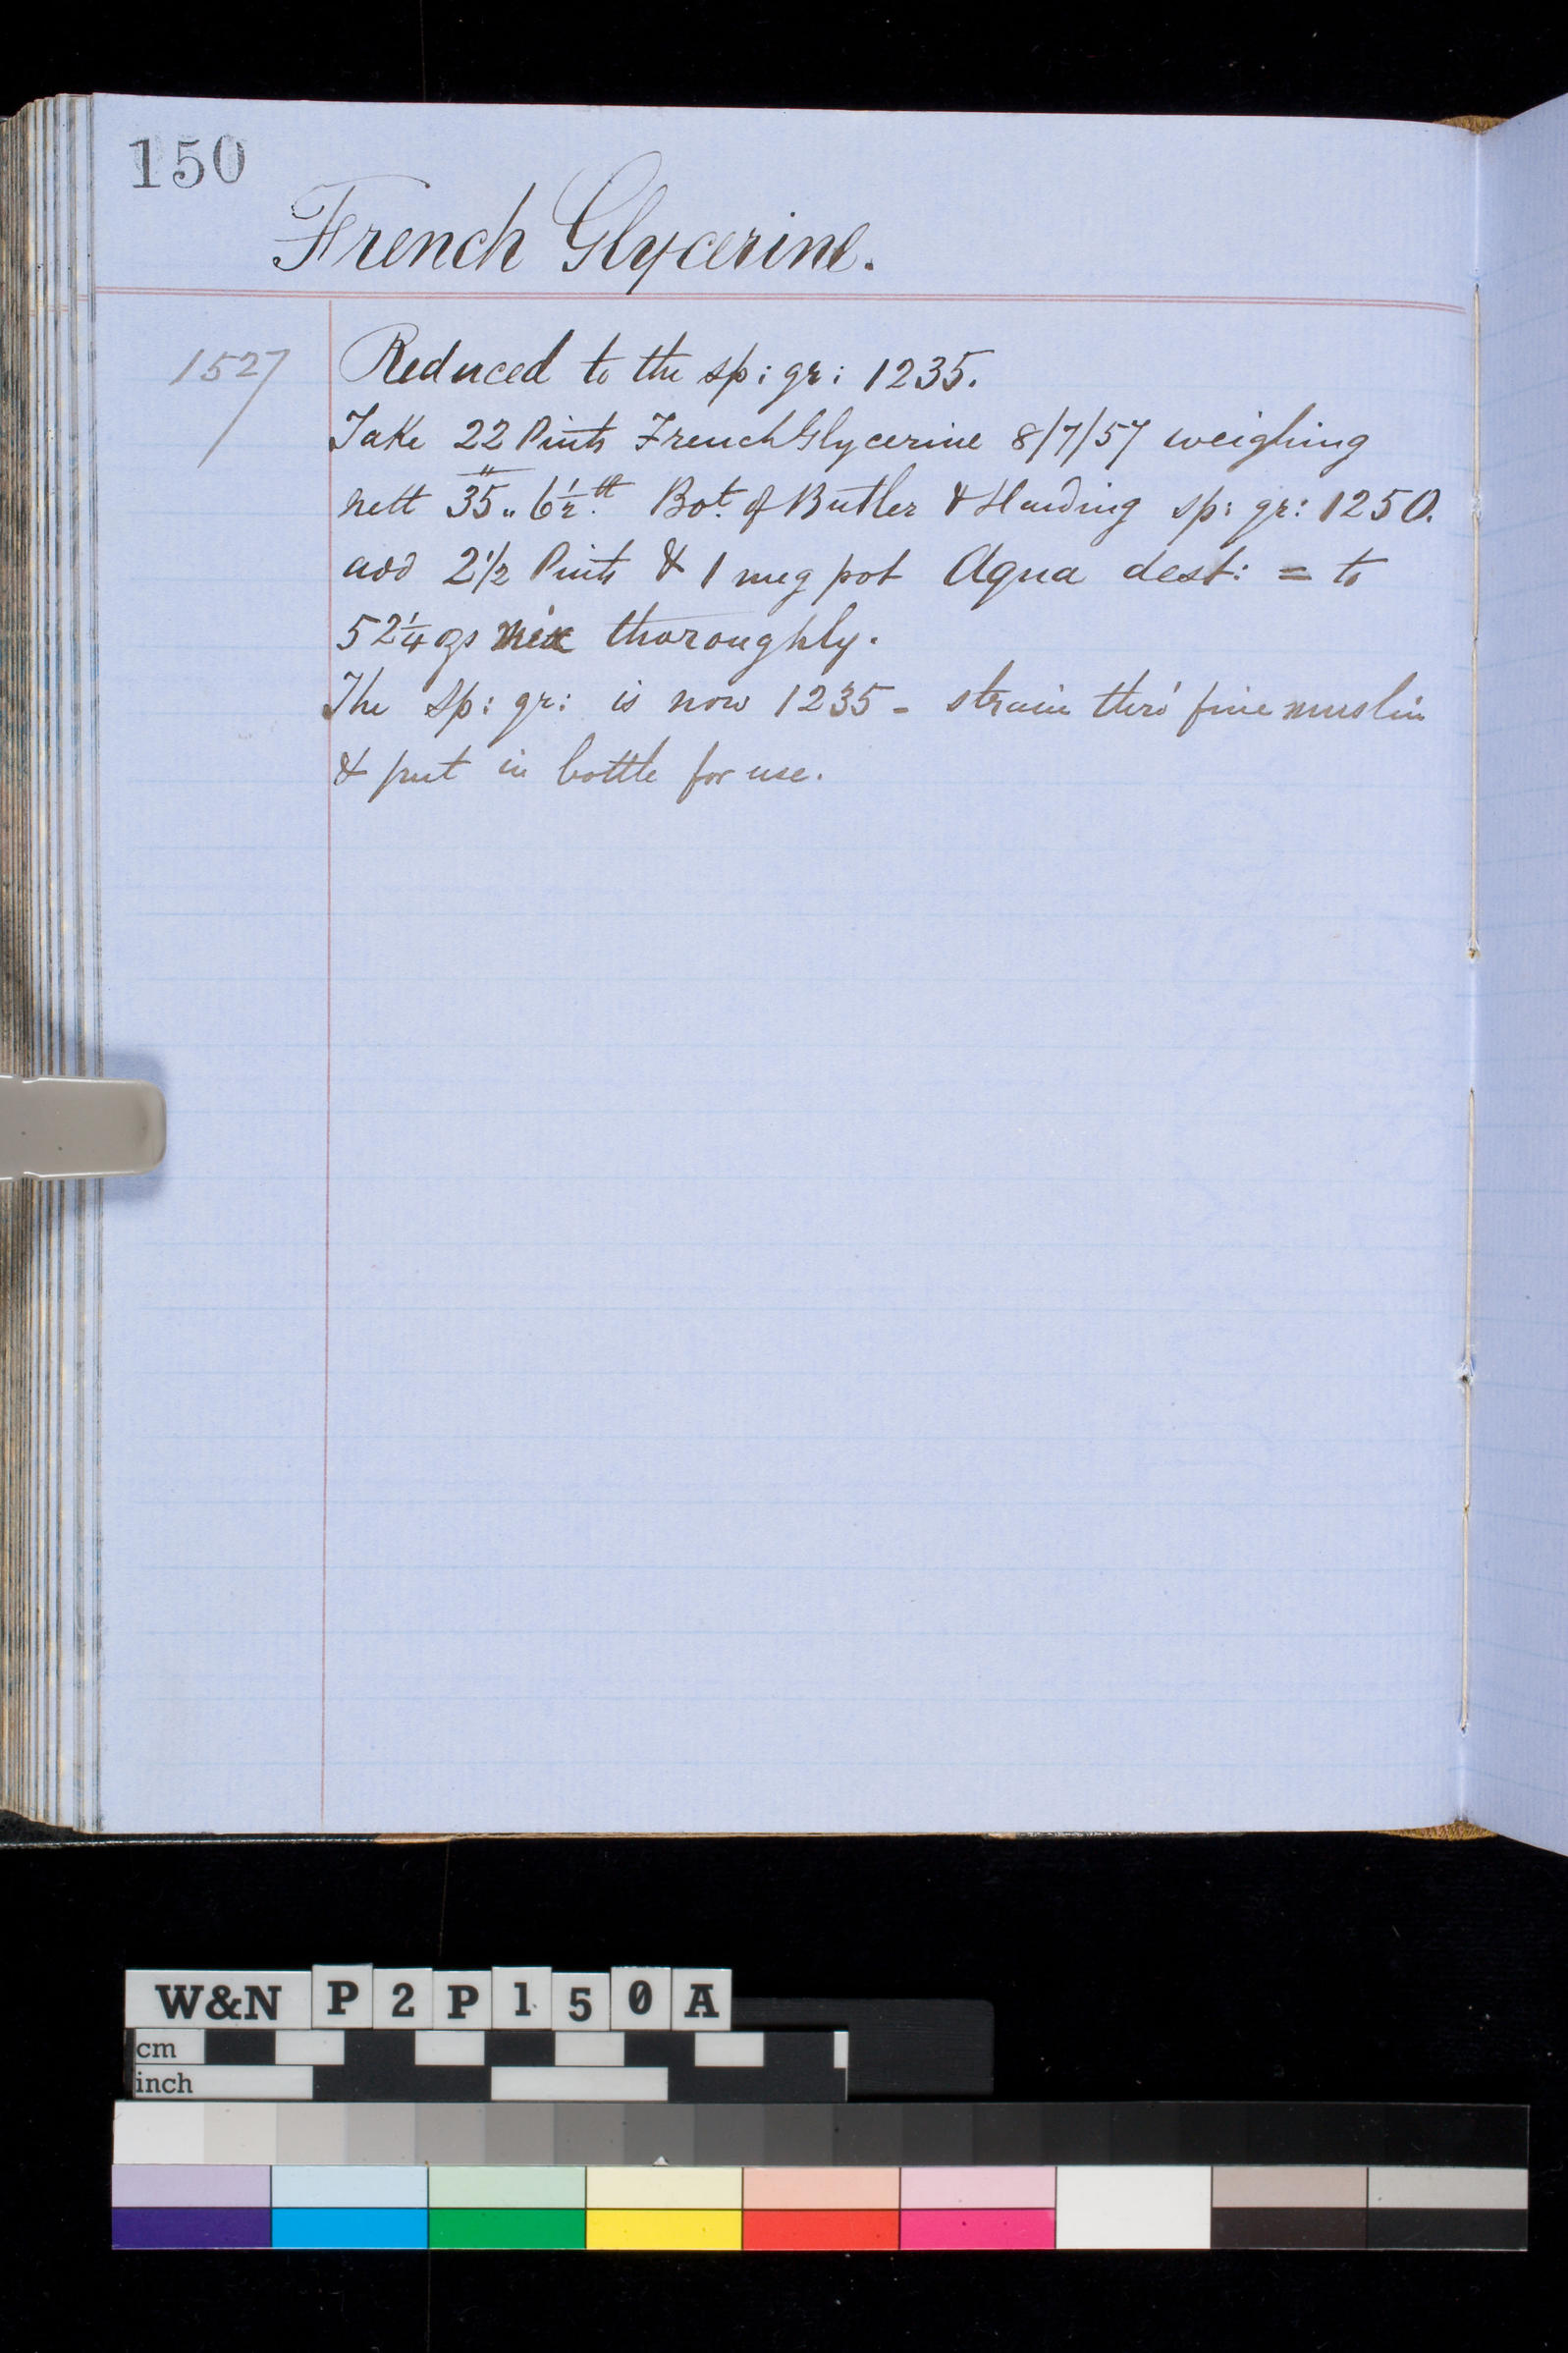 150
French Glycerine.
1527
Reduced to the sp: gr: 1235.
Take 22 Pints French Glycerine 8/7/57 weighing
nett 35 " 6½ lb. Bot. of Butler & Harding sp: gr: 1250.
add 2½ Pints & 1 meg pot Aqua dest: = to
52¼ ozs mix thoroughly.
The sp: gr: is now 1235 - strain thro' fine muslin
& put in bottle for use.
W&N P2P150A
cm
inch